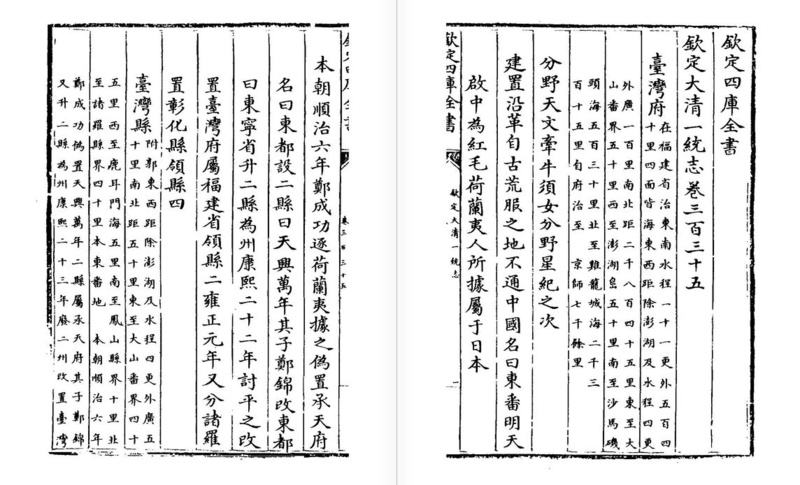 欽定四庫全書
欽定大清一統志卷三百三十五
臺灣府
在福建省治東南水程一十一更外五百四
十里四面皆海東西距除澎湖及水程四更
外廣一百里南北距二千八百四十五里東至大
山番界五十里西至澎湖島五十里南至沙馬磯
頭海五百三十里北至雞籠城海二千三
百十五里自府治至 京師七千餘里
分野天文牽牛須女分野星紀之次
建置沿革自古荒服之地不通中國名曰東番明天
啟中為紅毛荷蘭夷人所據屬于日本
欽定四庫全書
欽定大清一統志
一
欽定四庫全書
卷三百三十五
本朝順治六年鄭成功逐荷蘭夷據之偽置承天府
名曰東都設二縣曰天興萬年其子鄭錦改東都
曰東寧省升二縣為州康熙二十二年討平之改
置臺灣府屬福建省領縣二雍正元年又分諸羅
置彰化縣領縣四
臺灣縣
附郭東西距除澎湖及水程四更外廣五
十里南北距五十里東至大山番界四十
五里西至鹿耳門海五里南至鳳山縣界十里北
至諸羅縣界四十里本東番地 本朝順治六年
鄭成功偽置天興萬年二縣屬承天府其子鄭錦
又升二縣為州康熙二十三年廢二州改置臺灣